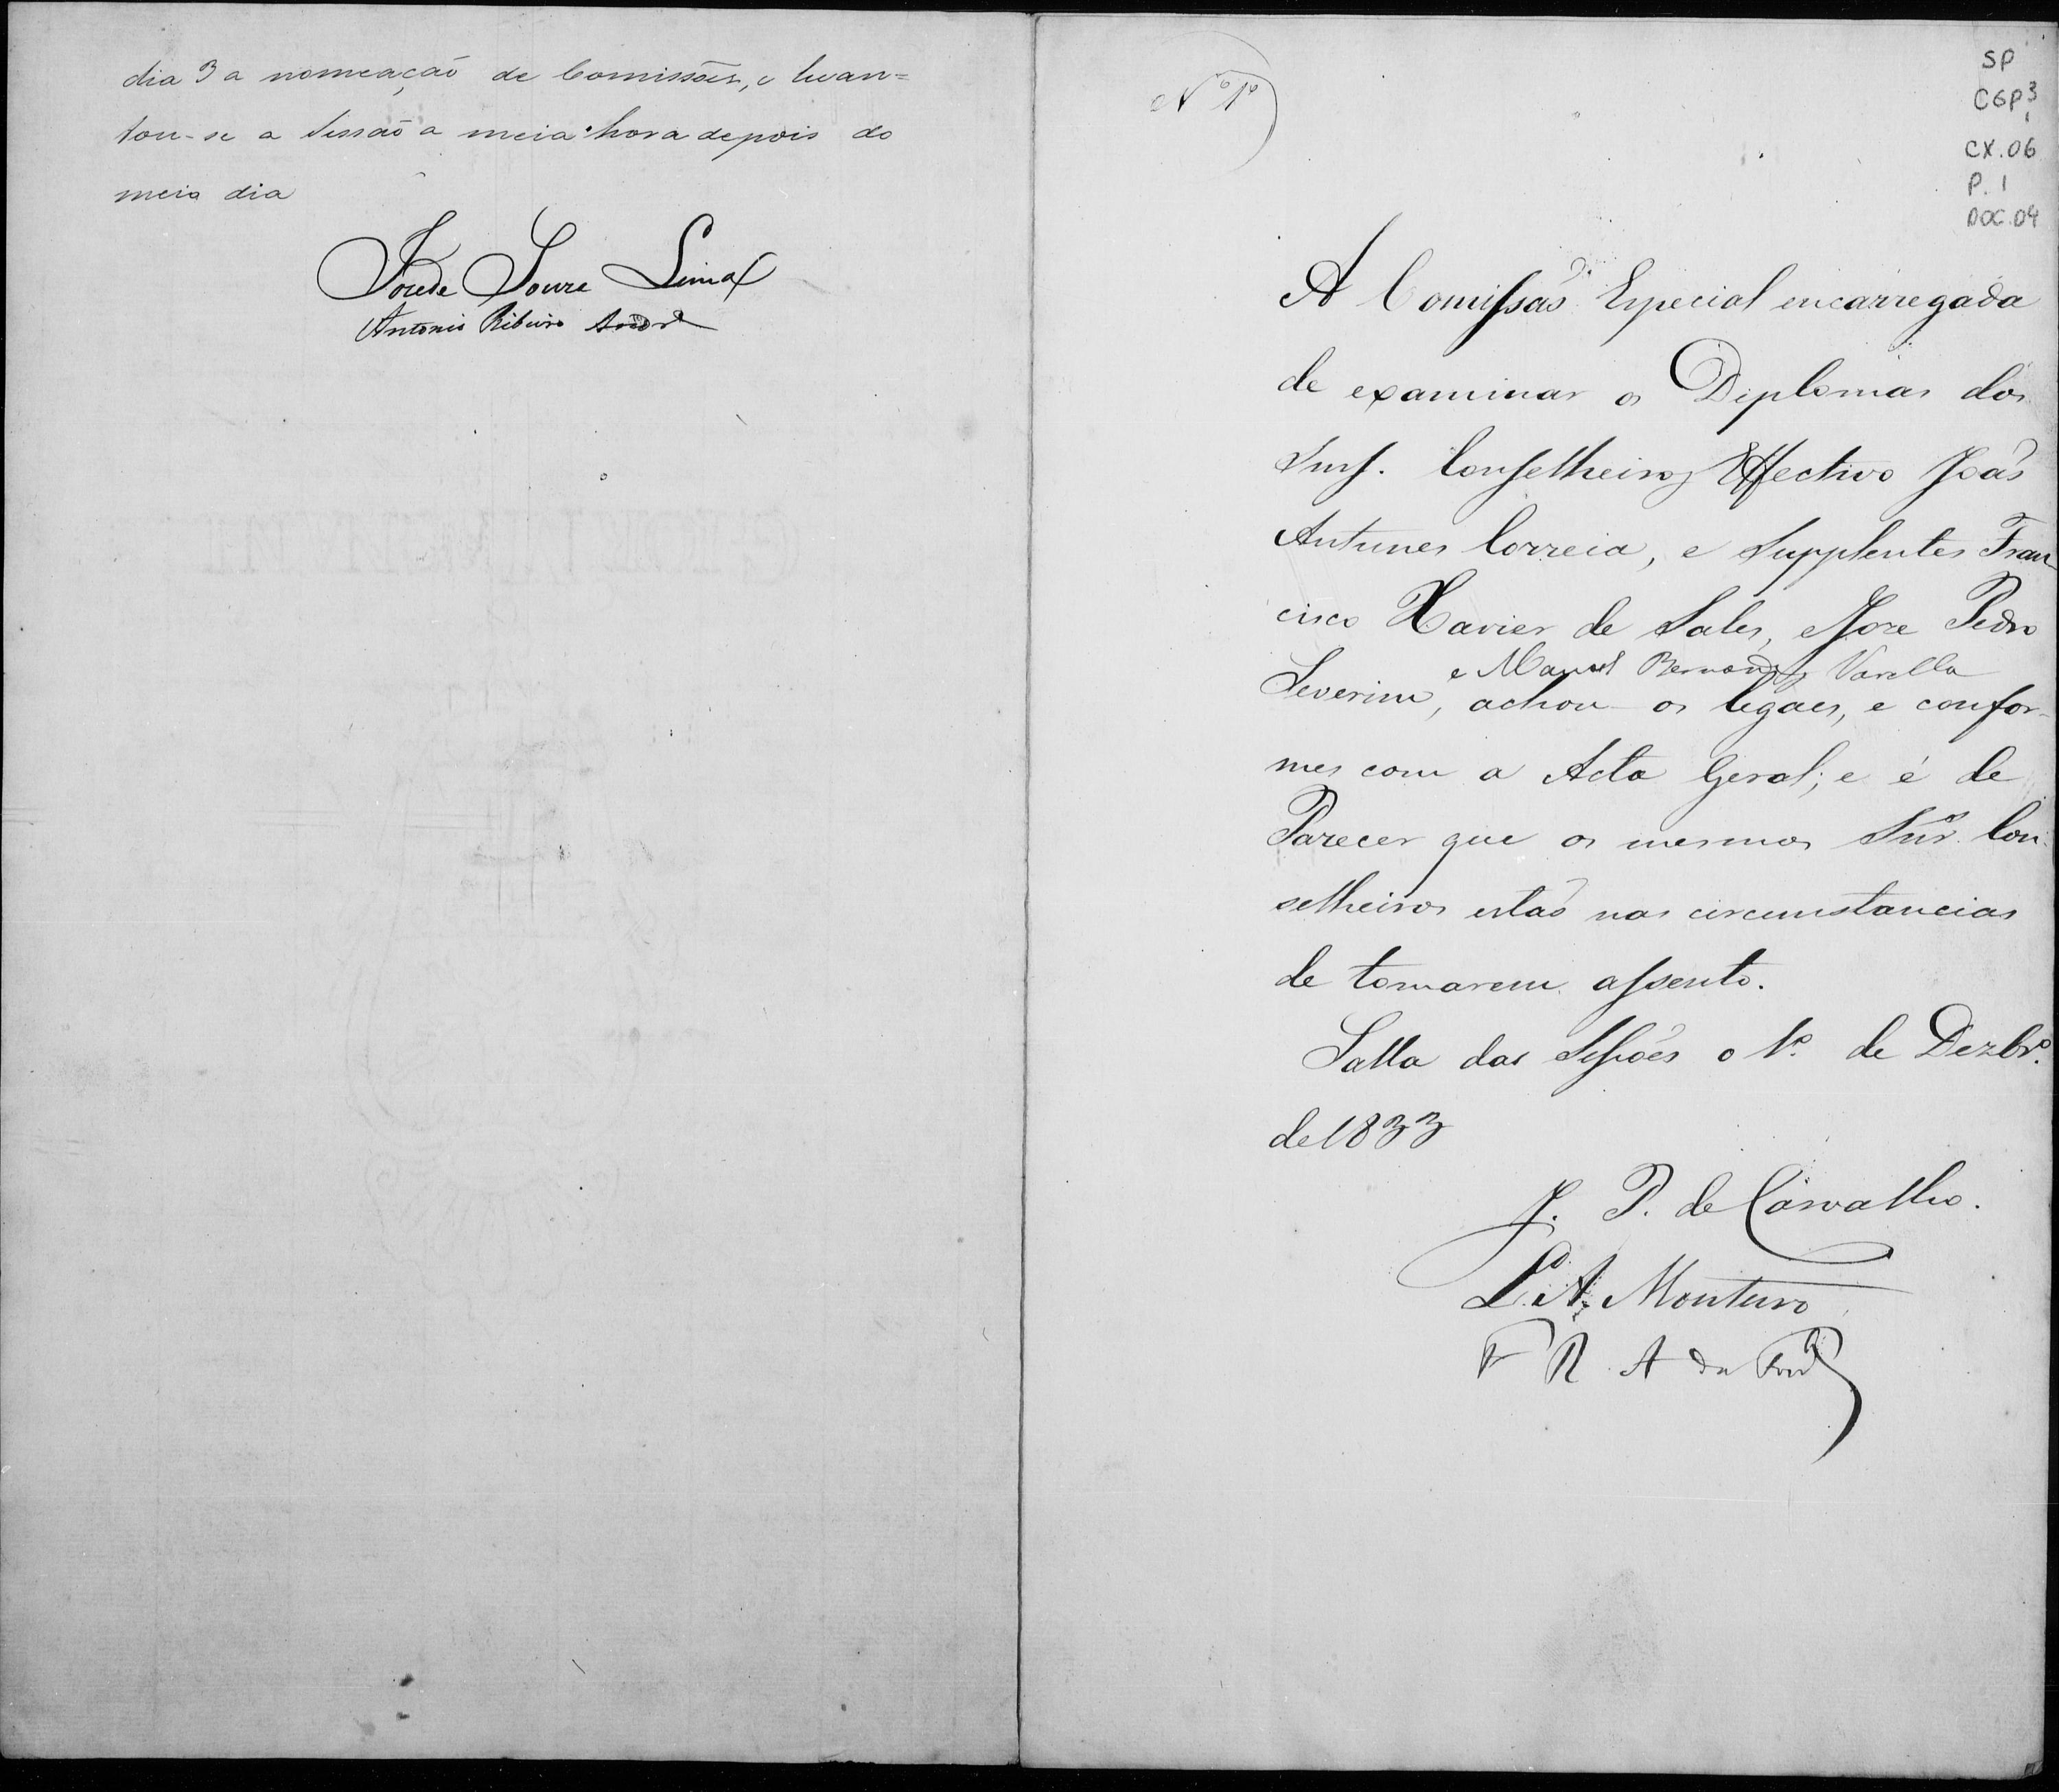 dia 3 a nomeação de Comissões, e levan=
tou-se a Sessão a meia hora depois do
meio dia
José de Soure Lima
Antonio Ribeiro
Nº 1º
SP
CGP3
CX.06
P. 1
DOC.04
A Comissaõ Especial encarregada
de examinar os Diplomas dos
Conselheiros Effectivo Joaõ
Antunes Correia, e Supplentes Fran
cisco Xavier de Sales, e Joze Pedro
e Manuel Bernardes Varella
Severim, achou os legaes, e confor-
mes com a Acta Geral; e é de
Parecer que os mesmos Snrs. Con
selheiros estaõ nas circumstancias
de tomarem assento.
Salla das Sessões o 1º de Dezbrº.
de 1833
J. P. de Carvalho.
L. A. Monteiro
F R A da